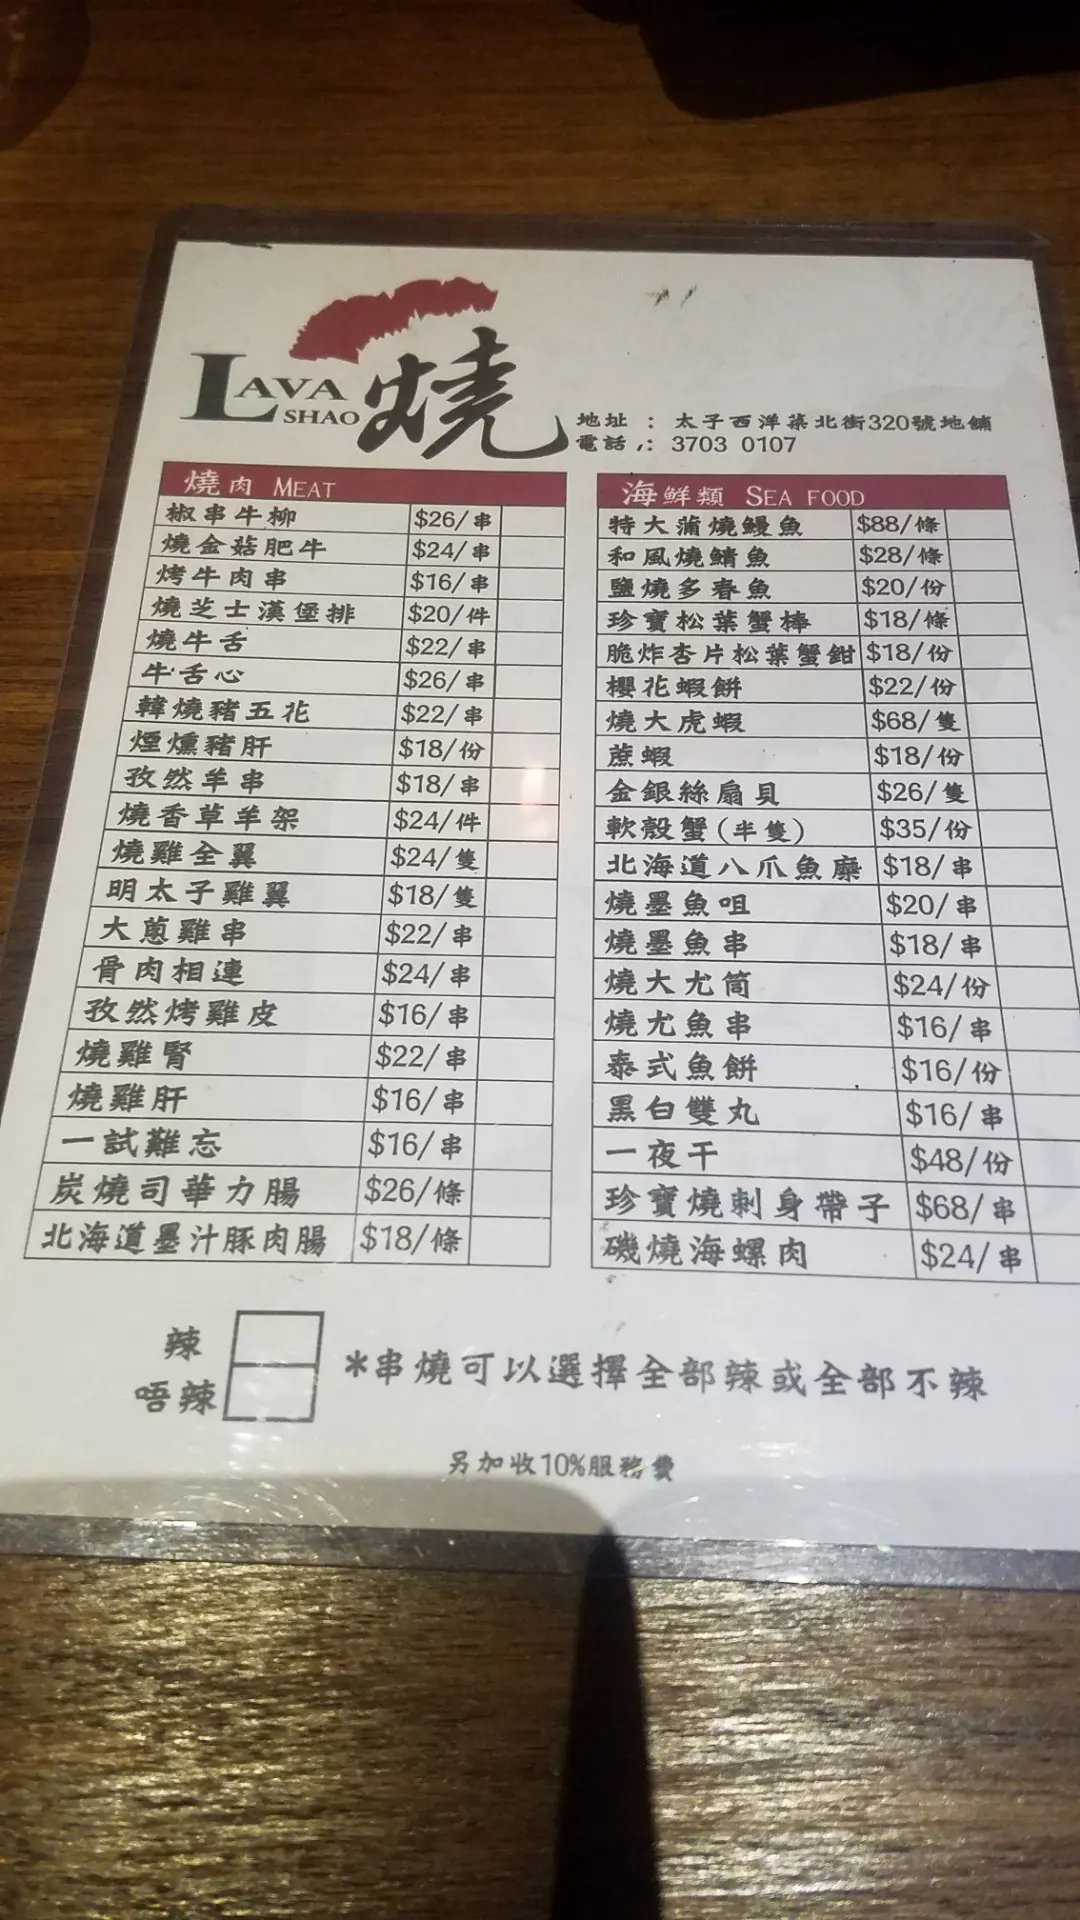 LAVA SHAO 燒
地址 : 太子西洋菜北街320號地舖
電話 : 3703 0107
燒肉 MEAT
椒串牛柳 $26/串
燒金菇肥牛 $24/串
烤牛肉串 $16/串
燒芝士漢堡排 $20/件
燒牛舌 $22/串
牛舌心 $26/串
韓燒豬五花 $22/串
煙燻豬肝 $18/份
孜然羊串 $18/串
燒香草羊架 $24/件
燒雞全翼 $24/隻
明太子雞翼 $18/隻
大蔥雞串 $22/串
骨肉相連 $24/串
孜然烤雞皮 $16/串
燒雞腎 $22/串
燒雞肝 $16/串
一試難忘 $16/串
炭燒司華力腸 $26/條
北海道墨汁豚肉腸 $18/條
海鮮類 SEA FOOD
特大蒲燒鰻魚 $88/條
和風燒鯖魚 $28/條
鹽燒多春魚 $20/份
珍寶松葉蟹棒 $18/條
脆炸杏片松葉蟹鉗 $18/份
櫻花蝦餅 $22/份
燒大虎蝦 $68/隻
蔗蝦 $18/份
金銀絲扇貝 $26/隻
軟殼蟹(半隻) $35/份
北海道八爪魚糜 $18/串
燒墨魚咀 $20/串
燒墨魚串 $18/串
燒大尤筒 $24/份
燒尤魚串 $16/串
泰式魚餅 $16/份
黑白雙丸 $16/串
一夜干 $48/份
珍寶燒刺身帶子 $68/串
磯燒海螺肉 $24/串
辣
唔辣
*串燒可以選擇全部辣或全部不辣
另加收10%服務費